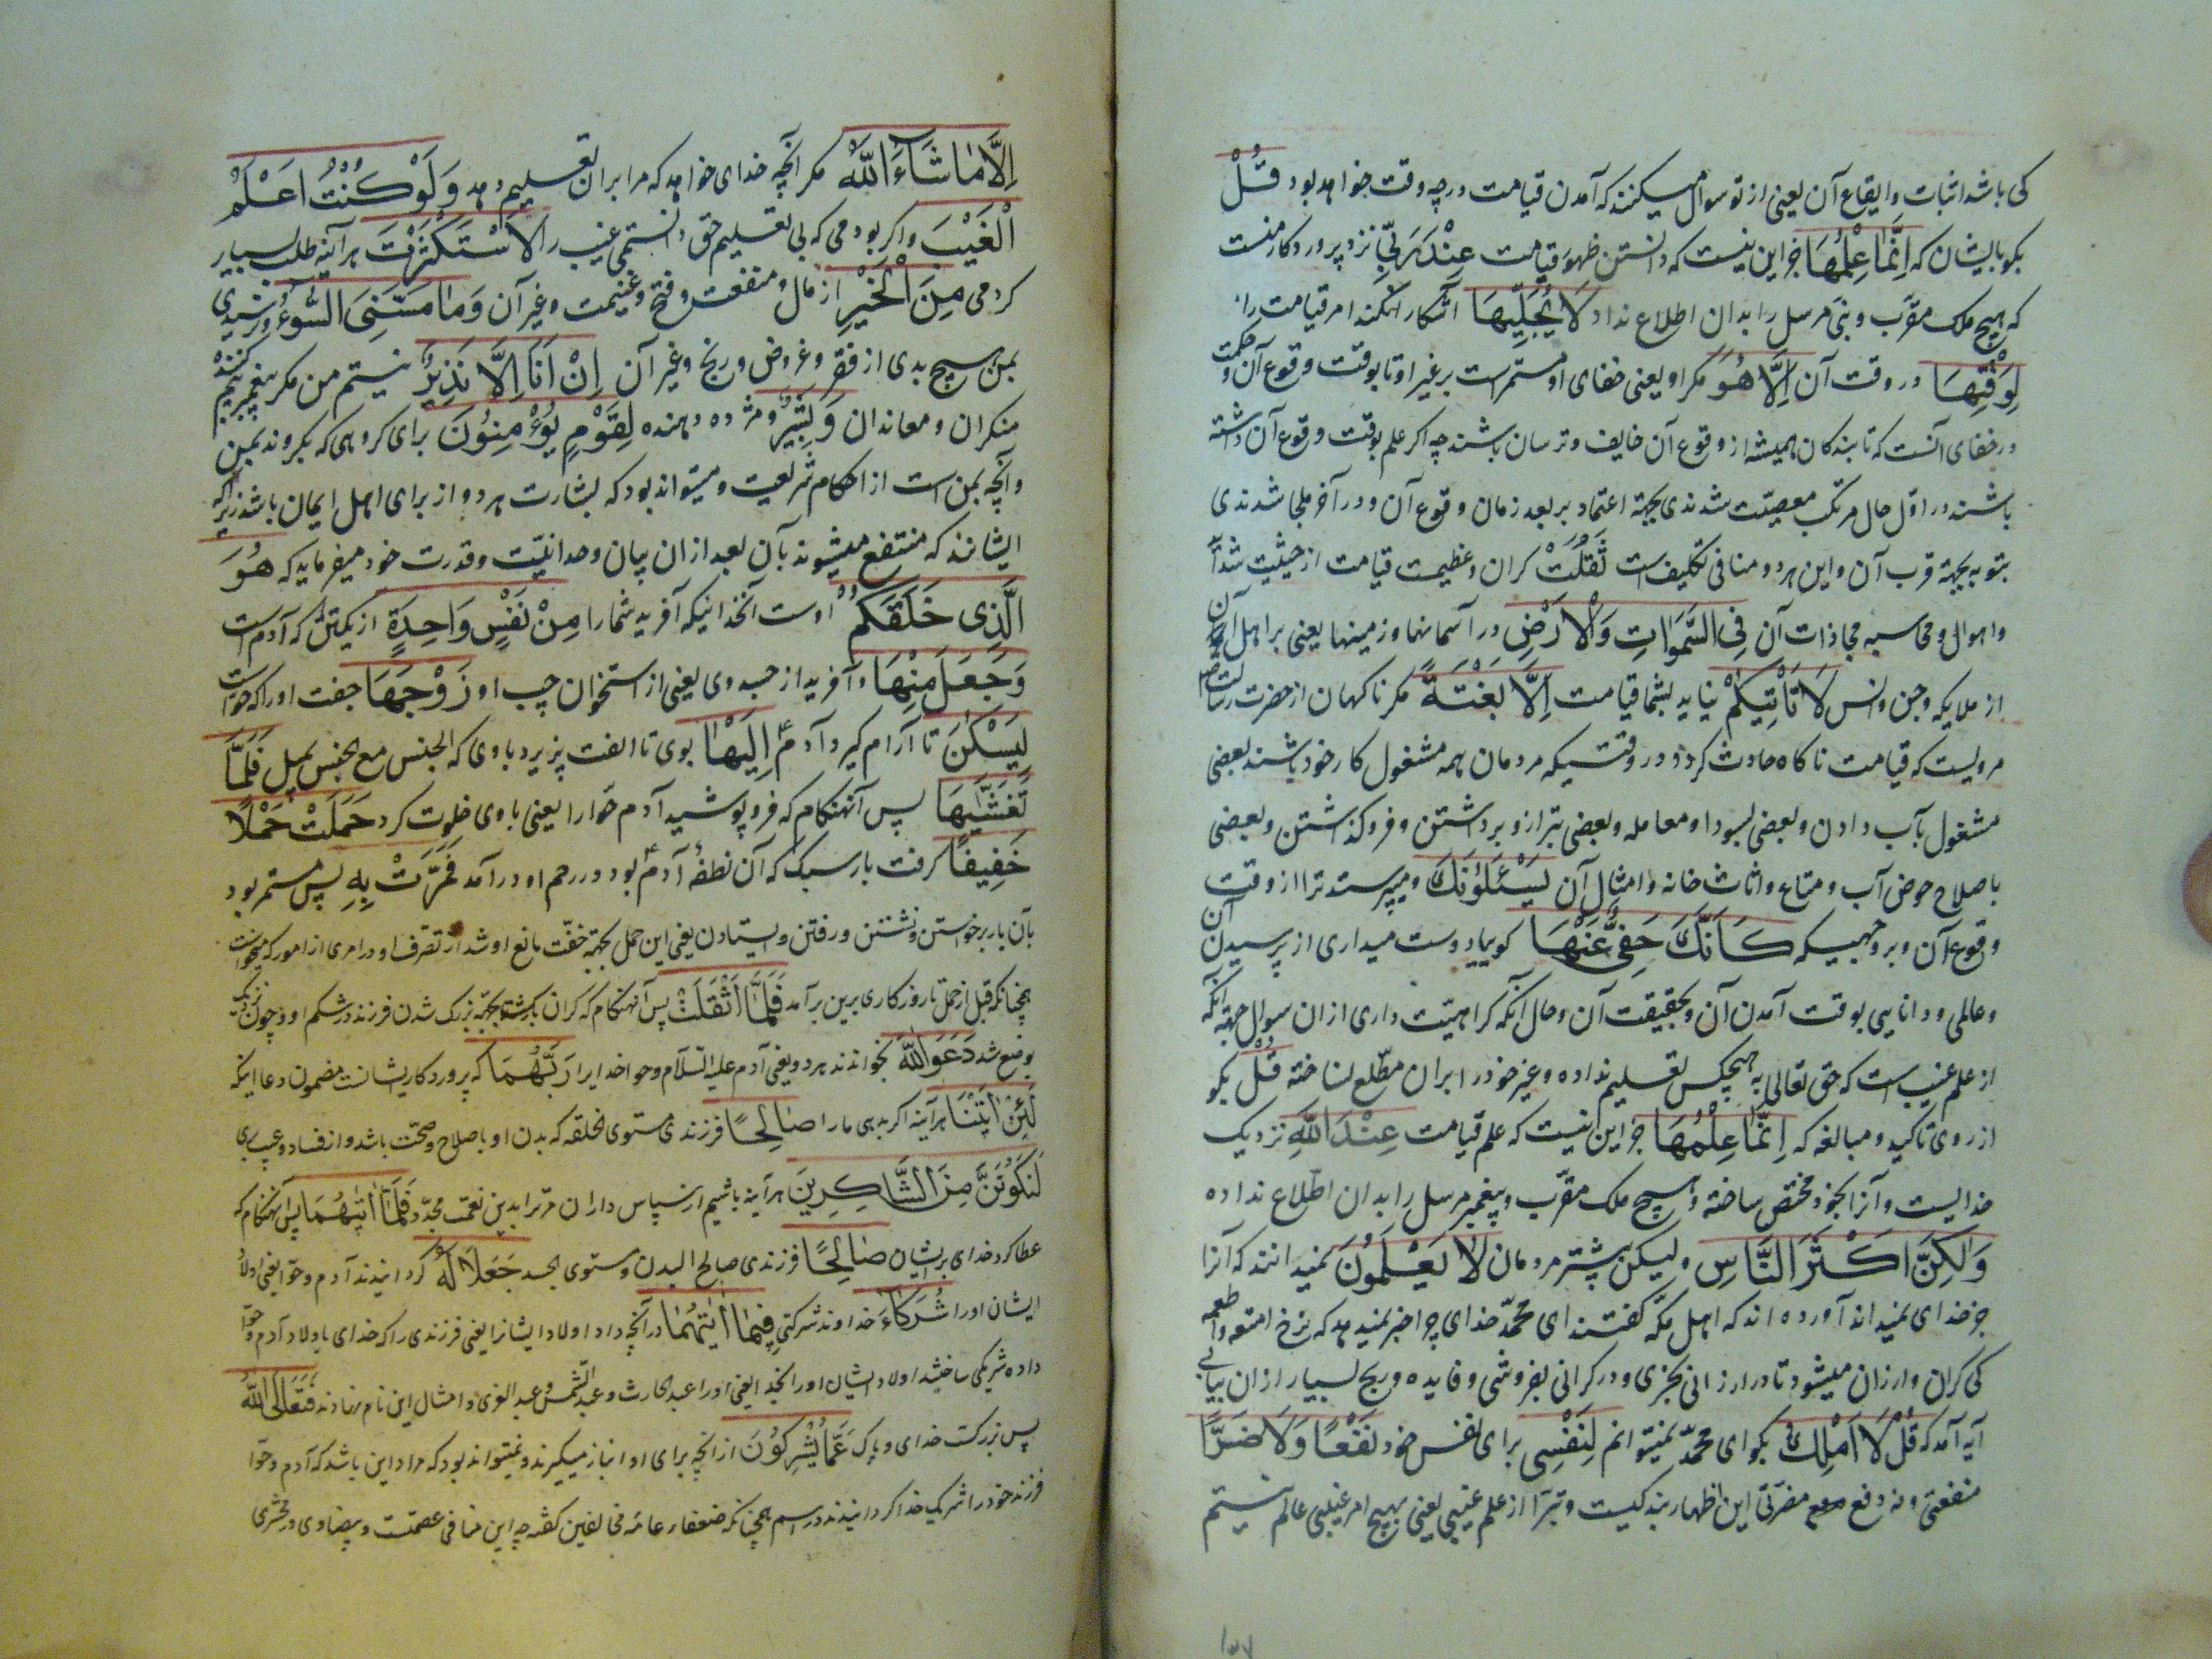 کی باشد اثبات و ایقاع آن یعنی از تو سوال میکنند که آمدن قیامت در چه وقت خواهد بود قُلْ
بکو بایشان که اِنَّمَا عِلْمُهَا جز این نیست که دانستن ظهور قیامت عِنْدَ رَبِّی نزد پروردکار منست
که هیچ ملک مقرّب و نبی مرسل را بدان اطلاع نداد لَا یُجَلِّیهَا آشکارا نکند امر قیامت را
لِوَقْتِهَا در وقت آن اِلَّا هُوَ مکر او یعنی خفای او مستمر است بر غیر او تا بوقت وقوع آن و حکمت
در خفای آنست که تا بندکان همیشه از وقوع آن خایف و ترسان باشند چه اکر علم بوقت وقوع آن داشته
باشند در اوّل حال مرتکب معصیّت شدندی بجهة اعتماد بر بعد زمان وقوع آن و در آخر ملجا شدندی
بتوبه بجهة قرب آن و این هر دو منافی تکلیف است ثَقُلَتْ کران و عظیمست قیامت از حیثیت شداید
و اهوال و محاسبه مجازات آن فِی السَّمَوَاتِ وَالْاَرْضِ در آسمانها و زمینها یعنی بر اهل آن
از ملایکه و جن و انس لَا تَاْتِیکُمْ نیاید بشما قیامت اِلَّا بَغْتَةً مکر ناکهان از حضرت رسالت
مرویست که قیامت ناکاه حادث کردد در وقتیکه مردمان همه مشغول کار خود باشند بعضی
مشغول بآب دادن و بعضی بسودا و معامله و بعضی بترازو برداشتن و فروکذاشتن و بعضی
باصلاح حوض آب و متاع و اثاث خانه و امثال آن یَسْئَلُونَكَ و میپرسند ترا از وقت
وقوع آن و بر وجهیکه کَاَنَّكَ حَفِیٌّ عَنْهَا کوییا دوست میداری از پرسیدن آن
و عالمی و دانایی بوقت آمدن آن و بحقیقت آن و حال آنکه کراهیّت داری از ان سوال جهة آنکه
از علم غیب است که حق تعالی به هیچکس تعلیم نداده و غیر خود را بران مطّلع نساخته قُلْ بکو
از روی تاکید و مبالغه که اِنَّمَا عِلْمُهَا جز این نیست که علم قیامت عِنْدَ اللّٰهِ نزدیک
خدایست و آنرا بخود مختص ساخته و هیچ ملک مقرّب و پیغمبر مرسل را بدان اطّلاع نداده
وَلٰکِنَّ اَکْثَرَ النَّاسِ ولیکن بیشتر مردمان لَا یَعْلَمُونَ نمیدانند که آنرا
جز خدای نمیداند آورده اند که اهل مکّه کفتند ای محمّد خدای چرا خبر نمیدهد که نرخ امتعه و اطعمه
کی کران و ارزان میشود تا در ارزانی بخری و در کرانی بفروشی و فایده و ربح بسیار از ان بیابی
آیه آمد که قُلْ لَا اَمْلِكُ بکو ای محمّد نمیتوانم لِنَفْسِی برای نفس خود نَفْعًا وَلَا ضَرًّا
منفعتی و نه دفع مضرّتی این اظهار بندکیست و تبرّا از علم غیبی یعنی بهیچ امر غیبی عالم نیستم
۱۳۷
اِلَّا مَا شَاءَ اللّٰهُ مکر آنچه خدای خواهد که مرا بران تعلیم دهد وَلَوْ کُنْتُ اَعْلَمُ
الْغَیْبَ و اکر بودمی که بی تعلیم حق دانستمی غیب را لَاسْتَکْثَرْتُ هر آینه طلب بسیار
کردمی مِنَ الْخَیْرِ از مال و منفعت و فتح و غنیمت و غیر آن وَمَا مَسَّنِیَ السُّوءُ و نرسیدی
بمن هیچ بدی از فقر و غروض و رنج و غیر آن اِنْ اَنَا اِلَّا نَذِیرٌ نیستم من مکر پیغمبر بیم کننده
منکران و معاندان وَبَشِیرٌ و مژده دهنده لِقَوْمٍ یُؤْمِنُونَ برای کروهی که بکروند بمن
و آنچه بمن است از احکام شریعت و میتواند بود که بشارت هر دو از برای اهل ایمان باشد زیرا که
ایشانند که منتفع میشوند بآن بعد از ان بیان وحدانیّت و قدرت خود میفرماید که هُوَ
الَّذِی خَلَقَکُمْ اوست آنخدائیکه آفرید شما را مِنْ نَفْسٍ وَاحِدَةٍ از یکتن که آدم است
وَجَعَلَ مِنْهَا و آفرید از جسد وی یعنی از استخوان چپ او زَوْجَهَا جفت او را که حوّاست
لِیَسْکُنَ تا آرام کیرد آدم اِلَیْهَا بوی تا الفت پزیرد با وی که الجنس مع الجنس یمیل فَلَمَّا
تَغَشّٰیهَا پس آنهنکام که فرو پوشید آدم حوّا را یعنی با وی خلوت کرد حَمَلَتْ حَمْلًا
خَفِیفًا کرفت بار سبک که آن نطفهٔ آدم بود در رحم او در آمد فَمَرَّتْ بِهِ پس مستمر بود
بآن بار برخواستن و نشستن و رفتن و ایستادن یعنی این حمل بجهة خفّت مانع او نشد از تصرّف او در امری از امور که میخواست
همچنانکه قبل از حمل تا روزکاری برین برآمد فَلَمَّا اَثْقَلَتْ پس آنهنکام که کران بار کشت بجهة بزرک شدن فرزند در شکم او و چون نزدیک
بوضع شد دَعَوَا اللّٰهَ بخواندند هر دو یعنی آدم علیه السّلام و حوا خدا ایرا رَبَّهُمَا که پروردکار ایشانست مضمون دعا اینکه
لَئِنْ اٰتَیْتَنَا هر آینه اکر بدهی ما را صَالِحًا فرزندی مستوی الخلقه که بدن او باصلاح و صحّت باشد و از فساد و عیب بری
لَنَکُونَنَّ مِنَ الشَّاکِرِینَ هر آینه باشیم از سپاس داران مر ترا بدین نعمت مجدّد فَلَمَّا اٰتٰیهُمَا پس آنهنکام که
عطا کرد خدای بر ایشان صَالِحًا فرزندی صالح البدن و مستوی الجسد جَعَلَا لَهُ کردانیدند آدم و حوّا یعنی اولاد
ایشان او را شُرَکَاءَ خداوند شرکتی فِیمَا اٰتٰیهُمَا در آنچه داد اولاد ایشانرا یعنی فرزندی را که خدای باولاد آدم و حوّا
داده شریکی ساختند اولاد ایشان او را بخدا یعنی او را عبد الحارث و عبد الشّمس و عبد العزی و امثال این نام نهادند فَتَعَالَی اللّٰهُ
پس بزرکست خدای و پاک عَمَّا یُشْرِکُونَ از آنچه برای او انباز میکیرند و نمیتواند بود که مراد این باشد که آدم و حوّا
فرزند خود را شریک خدا کردانیدند در اسم همچنانکه ضعفاء عامه مخالفین کفته چه این منافی عصمتست و بیضاوی و زمخشری